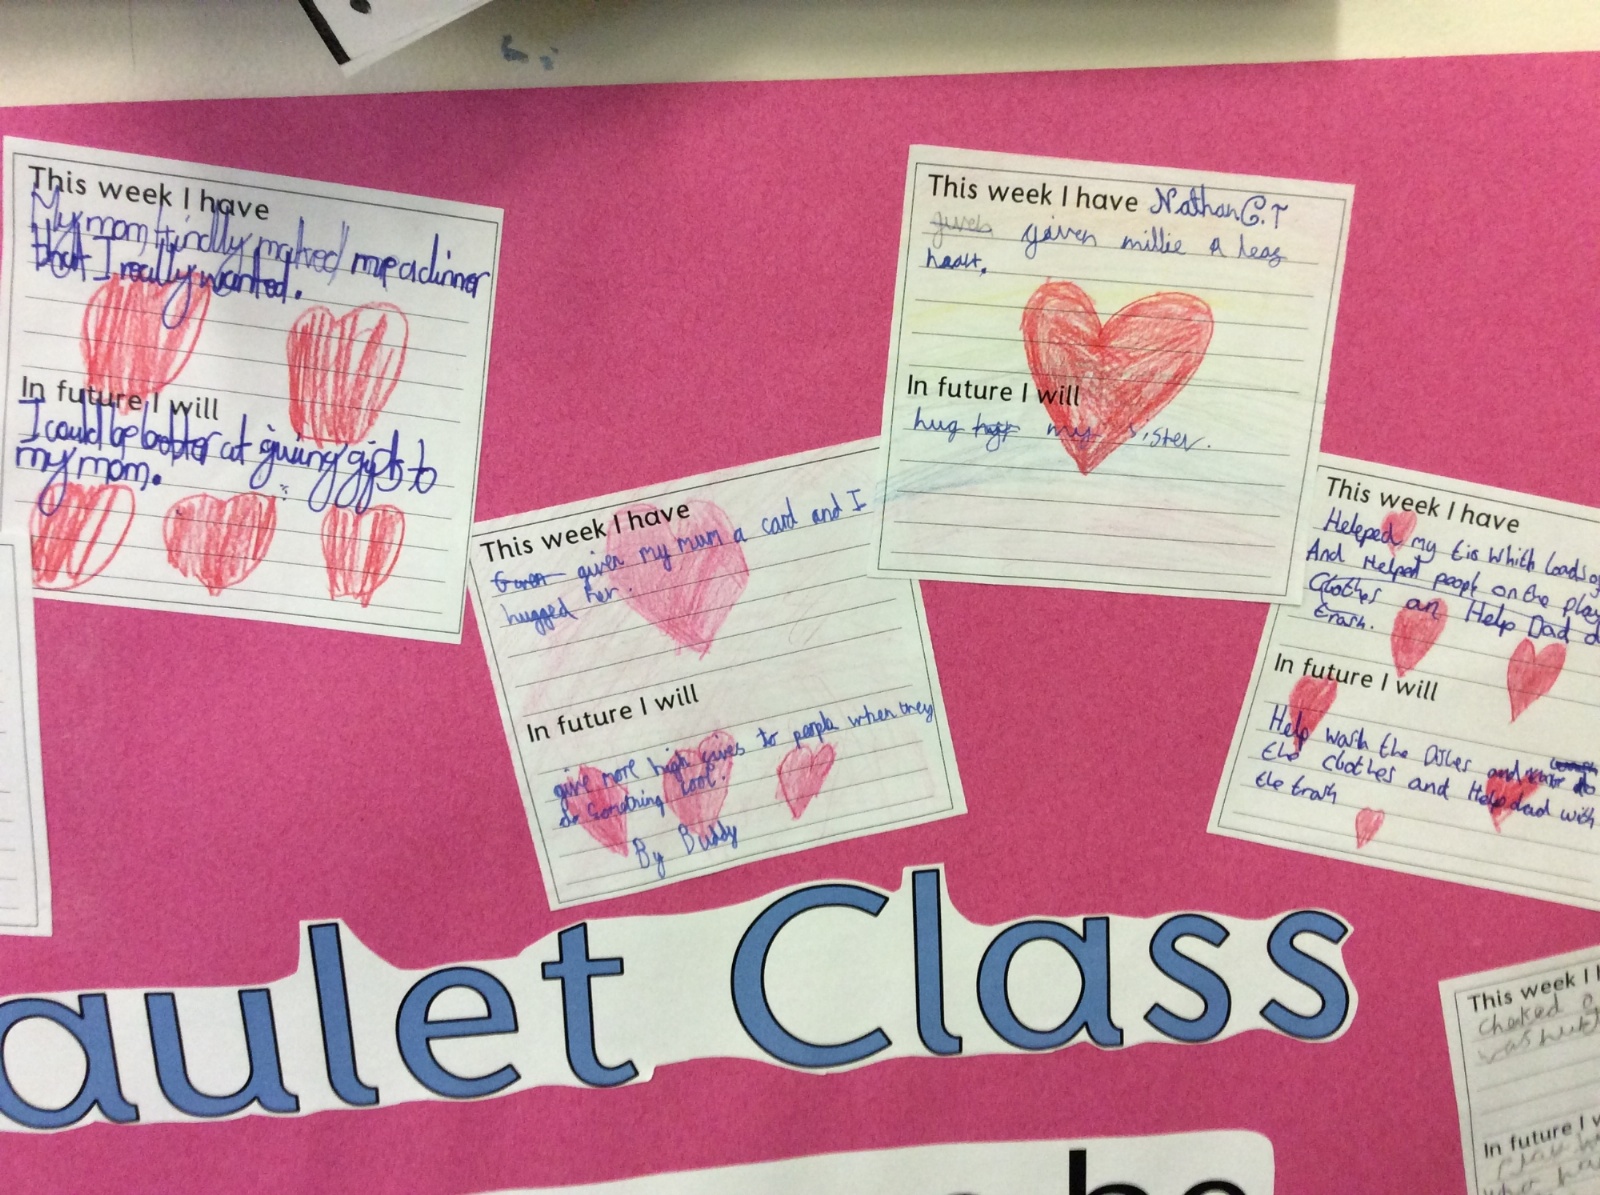 This week I have
My mom kindly maked me a dinner
that I really wanted.
In future I will
I could be better at giving gifts to
my mom.
This week I have
Given given my mum a card and I
hugged her.
In future I will
give more high gives to people when they
do something cool.
By Buddy
This week I have Nathan C.T
given given millie a
heart.
In future I will
hug my sister.
This week I have
Heleped my which loads of
And Helped peopl on the play
Clothes an Help Dad
trash.
In future I will
Help wash the Dishes and
the clothes and Help dad with
the trash
aulet Class
This week I
cheked
In future I
be